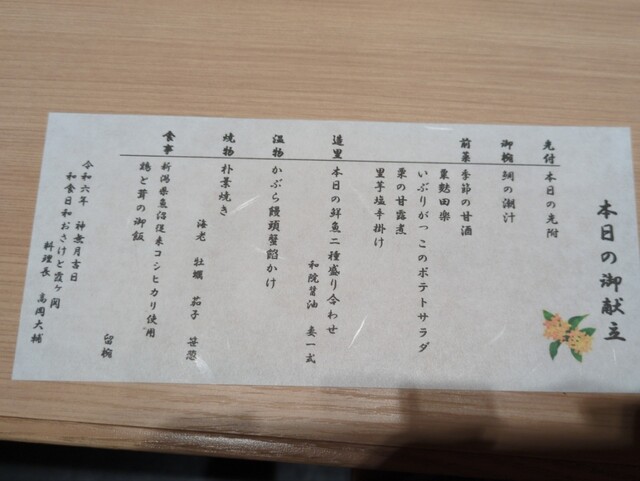 本日の御献立
先付 本日の先附
御椀 鯛の潮汁
前菜 季節の甘酒
粟麩田楽
いぶりがっこのポテトサラダ
栗の甘露煮
里芋塩辛掛け
造里 本日の鮮魚二種盛り合わせ
和院醤油 妻一式
温物 かぶら饅頭蟹餡かけ
焼物 朴葉焼き
海老 牡蠣 茄子 笹葱
食事 新潟県魚沼従来コシヒカリ使用
鶏と茸の御飯
留椀
令和六年 神無月吉日
和食日和おさけと霞ヶ関
料理長 高岡大輔